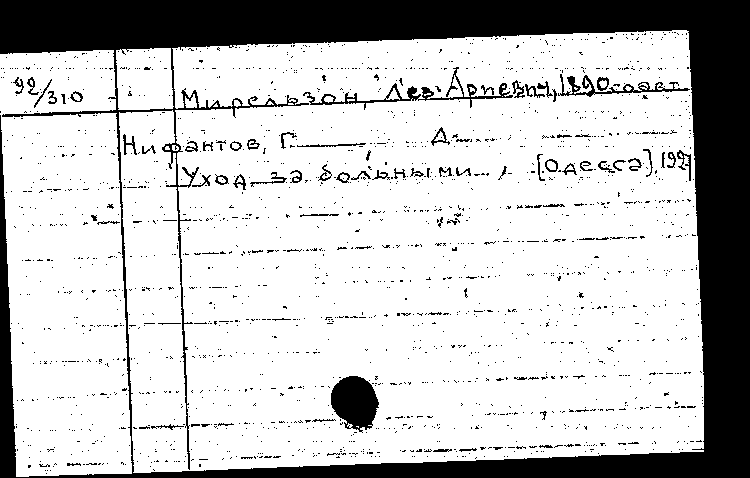 92/310
Мирельзон, Лев Ариевич, 1890 соавт.
Нифантов, Г. Д.
Уход за больными, [Одесса], 1927